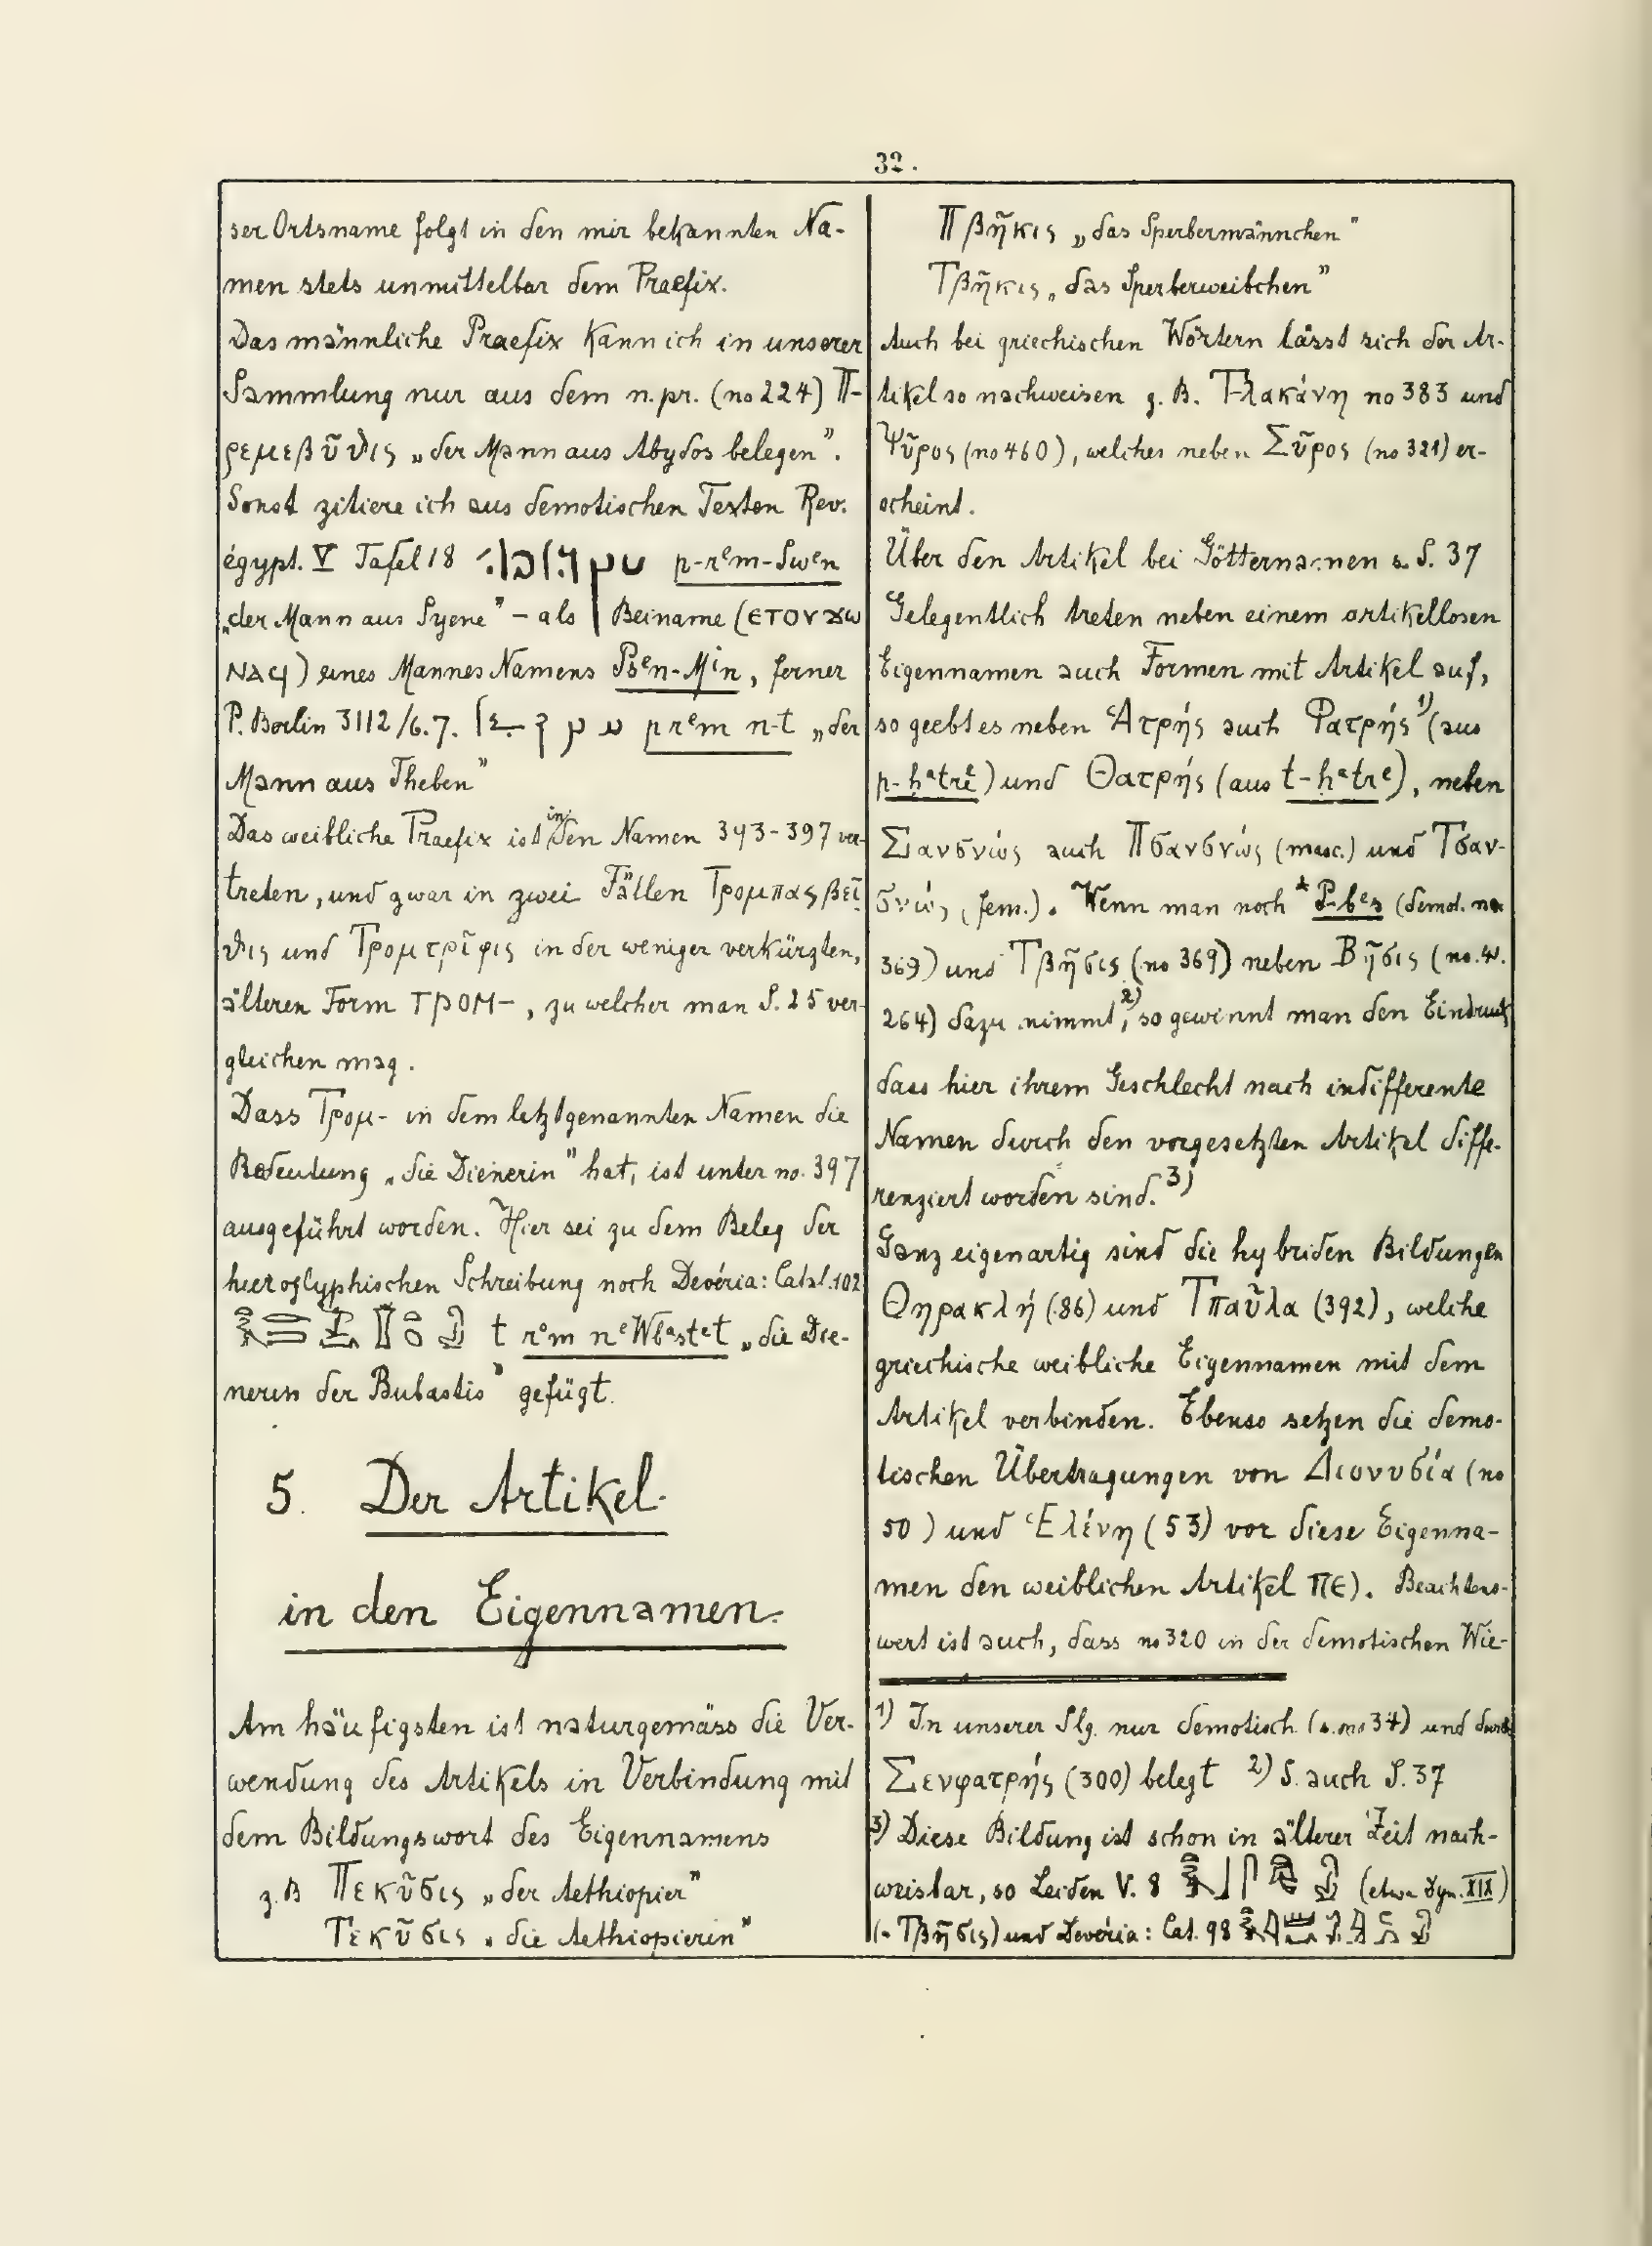 32.
ser Ortsname folgt in den mir bekannten Na-
men stets unmittelbar dem Praefix.
Das männliche Praefix kann ich in unserer
Sammlung nur aus dem n.pr. (no 224) Π-
ρεμεβῦϑις „der Mann aus Abydos belegen”.
Sonst zitiere ich aus demotischen Texten Rev.
égypt. V Tafel 18 p-rᵉm-Swᵉn
„der Mann aus Syene” – als Beiname (ⲉⲧⲟⲩϫⲱ
ⲛⲁϥ) eines Mannes Namens Psᵉn-Min, ferner
P. Berlin 3112/6.7. p rᵉm n-t „der
Mann aus Theben”
Das weibliche Praefix ist in den Namen 393-397 ver-
treten, und zwar in zwei Fällen Τρομπαςβεῖ
ϑις und Τρομτρῖφις in der weniger verkürzten,
älteren Form ΤΡΟΜ-, zu welcher man S. 25 ver-
gleichen mag.
Dass Τρομ- in dem letztgenannten Namen die
Bedeutung „die Dienerin” hat, ist unter no. 397
ausgeführt worden. Hier sei zu dem Beleg der
hieroglyphischen Schreibung noch Devéria: Catal. 102
t rᵉm nᵉ Wbᵃstᵉt „die Die-
nerin der Bubastis” gefügt.
5. Der Artikel
in den Eigennamen.
Am häufigsten ist naturgemäss die Ver-
wendung des Artikels in Verbindung mit
dem Bildungswort des Eigennamens
z.B Πεκῦσις „der Aethiopier”
Τεκῦσις „die Aethiopierin”
Πβῆκις „das Sperbermännchen”
Τβῆκις „das Sperberweibchen”
Auch bei griechischen Wörtern lässt sich der Ar-
tikel so nachweisen z. B. Τ-λακάνη no 383 und
Ψῦρος (no 460), welches neben Σῦρος (no 321) er-
scheint.
Über den Artikel bei Götternamen s. S. 37
Gelegentlich treten neben einem artikellosen
Eigennamen auch Formen mit Artikel auf,
so geebt es neben Ἁτρής auch Φατρής¹⁾ (aus
p-ḥᵃtrᵉ) und Θατρής (aus t-ḥᵃtrᵉ), neben
Σανσνώς auch Πσανσνώς (masc.) und Τσαν-
σνώς (fem.). Wenn man noch *P-bᵉs (demot. no
369) und Τβῆσις (no 369) neben Βῆσις (no. W.
264) dazu nimmt,²⁾ so gewinnt man den Eindruck
dass hier ihrem Geschlecht nach indifferente
Namen durch den vorgesetzten Artikel diffe-
renziert worden sind.³⁾
Ganz eigenartig sind die hybriden Bildungen
Θηρακλή (86) und Τπαῦλα (392), welche
griechische weibliche Eigennamen mit dem
Artikel verbinden. Ebenso setzen die demo-
tischen Übertragungen von Διονυσία (no
50) und Ἑλένη (53) vor diese Eigenna-
men den weiblichen Artikel ΠΕ). Beachtens-
wert ist auch, dass no 320 in der demotischen Wie-
¹⁾ In unserer Slg. nur demotisch (s. no 34) und durch
Σενφατρής (300) belegt ²⁾ S. auch S. 37
³⁾ Diese Bildung ist schon in älterer Zeit nach-
weisbar, so Leiden V. 8 (etwa Dyn. XIX)
(= Τβῆσις) und Devéria: Cat. 98